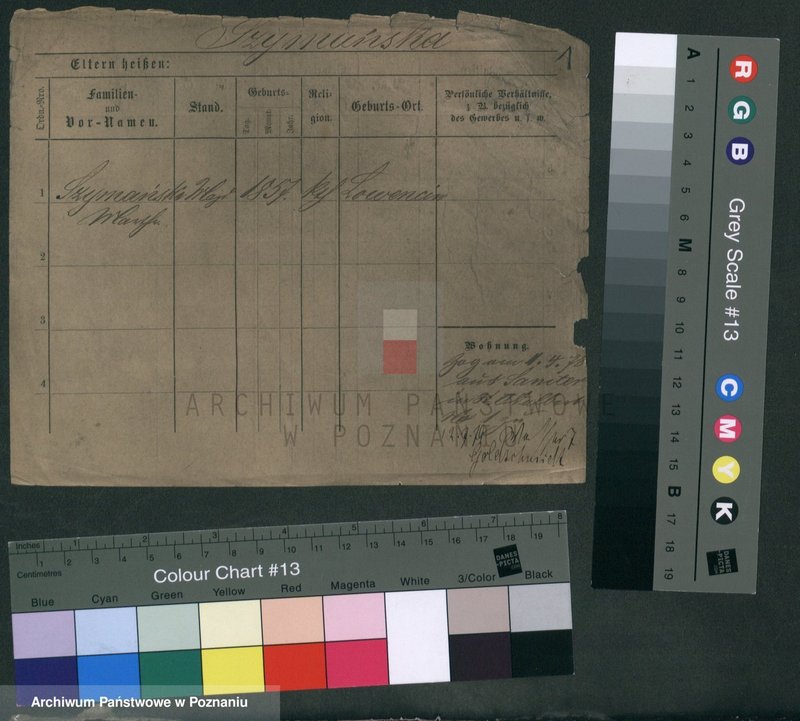 Szymańska
1
Eltern heißen:
Ordn.-Nro.
Familien-
und
Vor-Namen.
Stand.
Geburts-
Tag.
Monat.
Jahr.
Reli-
gion.
Geburts-Ort.
Persönliche Verhältnisse,
z. B. bezüglich
des Gewerbes u. s. w.
1 Szymańska 1857. Lowencin
2
3
4
Wohnung.
Zog am
aus
ARCHIWUM PAŃSTWOWE
W POZNANIU
A 1 2 3 4 5 6 M 8 9 10 11 12 13 14 15 B 17 18 19
R G B
Grey Scale #13
C M Y K
DANES
PICTA
Inches 1 2 3 4 5 6 7 8
1 2 3 4 5 6 7 8 9 10 11 12 13 14 15 16 17 18 19
Centimetres
Colour Chart #13
DANES
PICTA
Blue Cyan Green Yellow Red Magenta White 3/Color Black
Archiwum Państwowe w Poznaniu